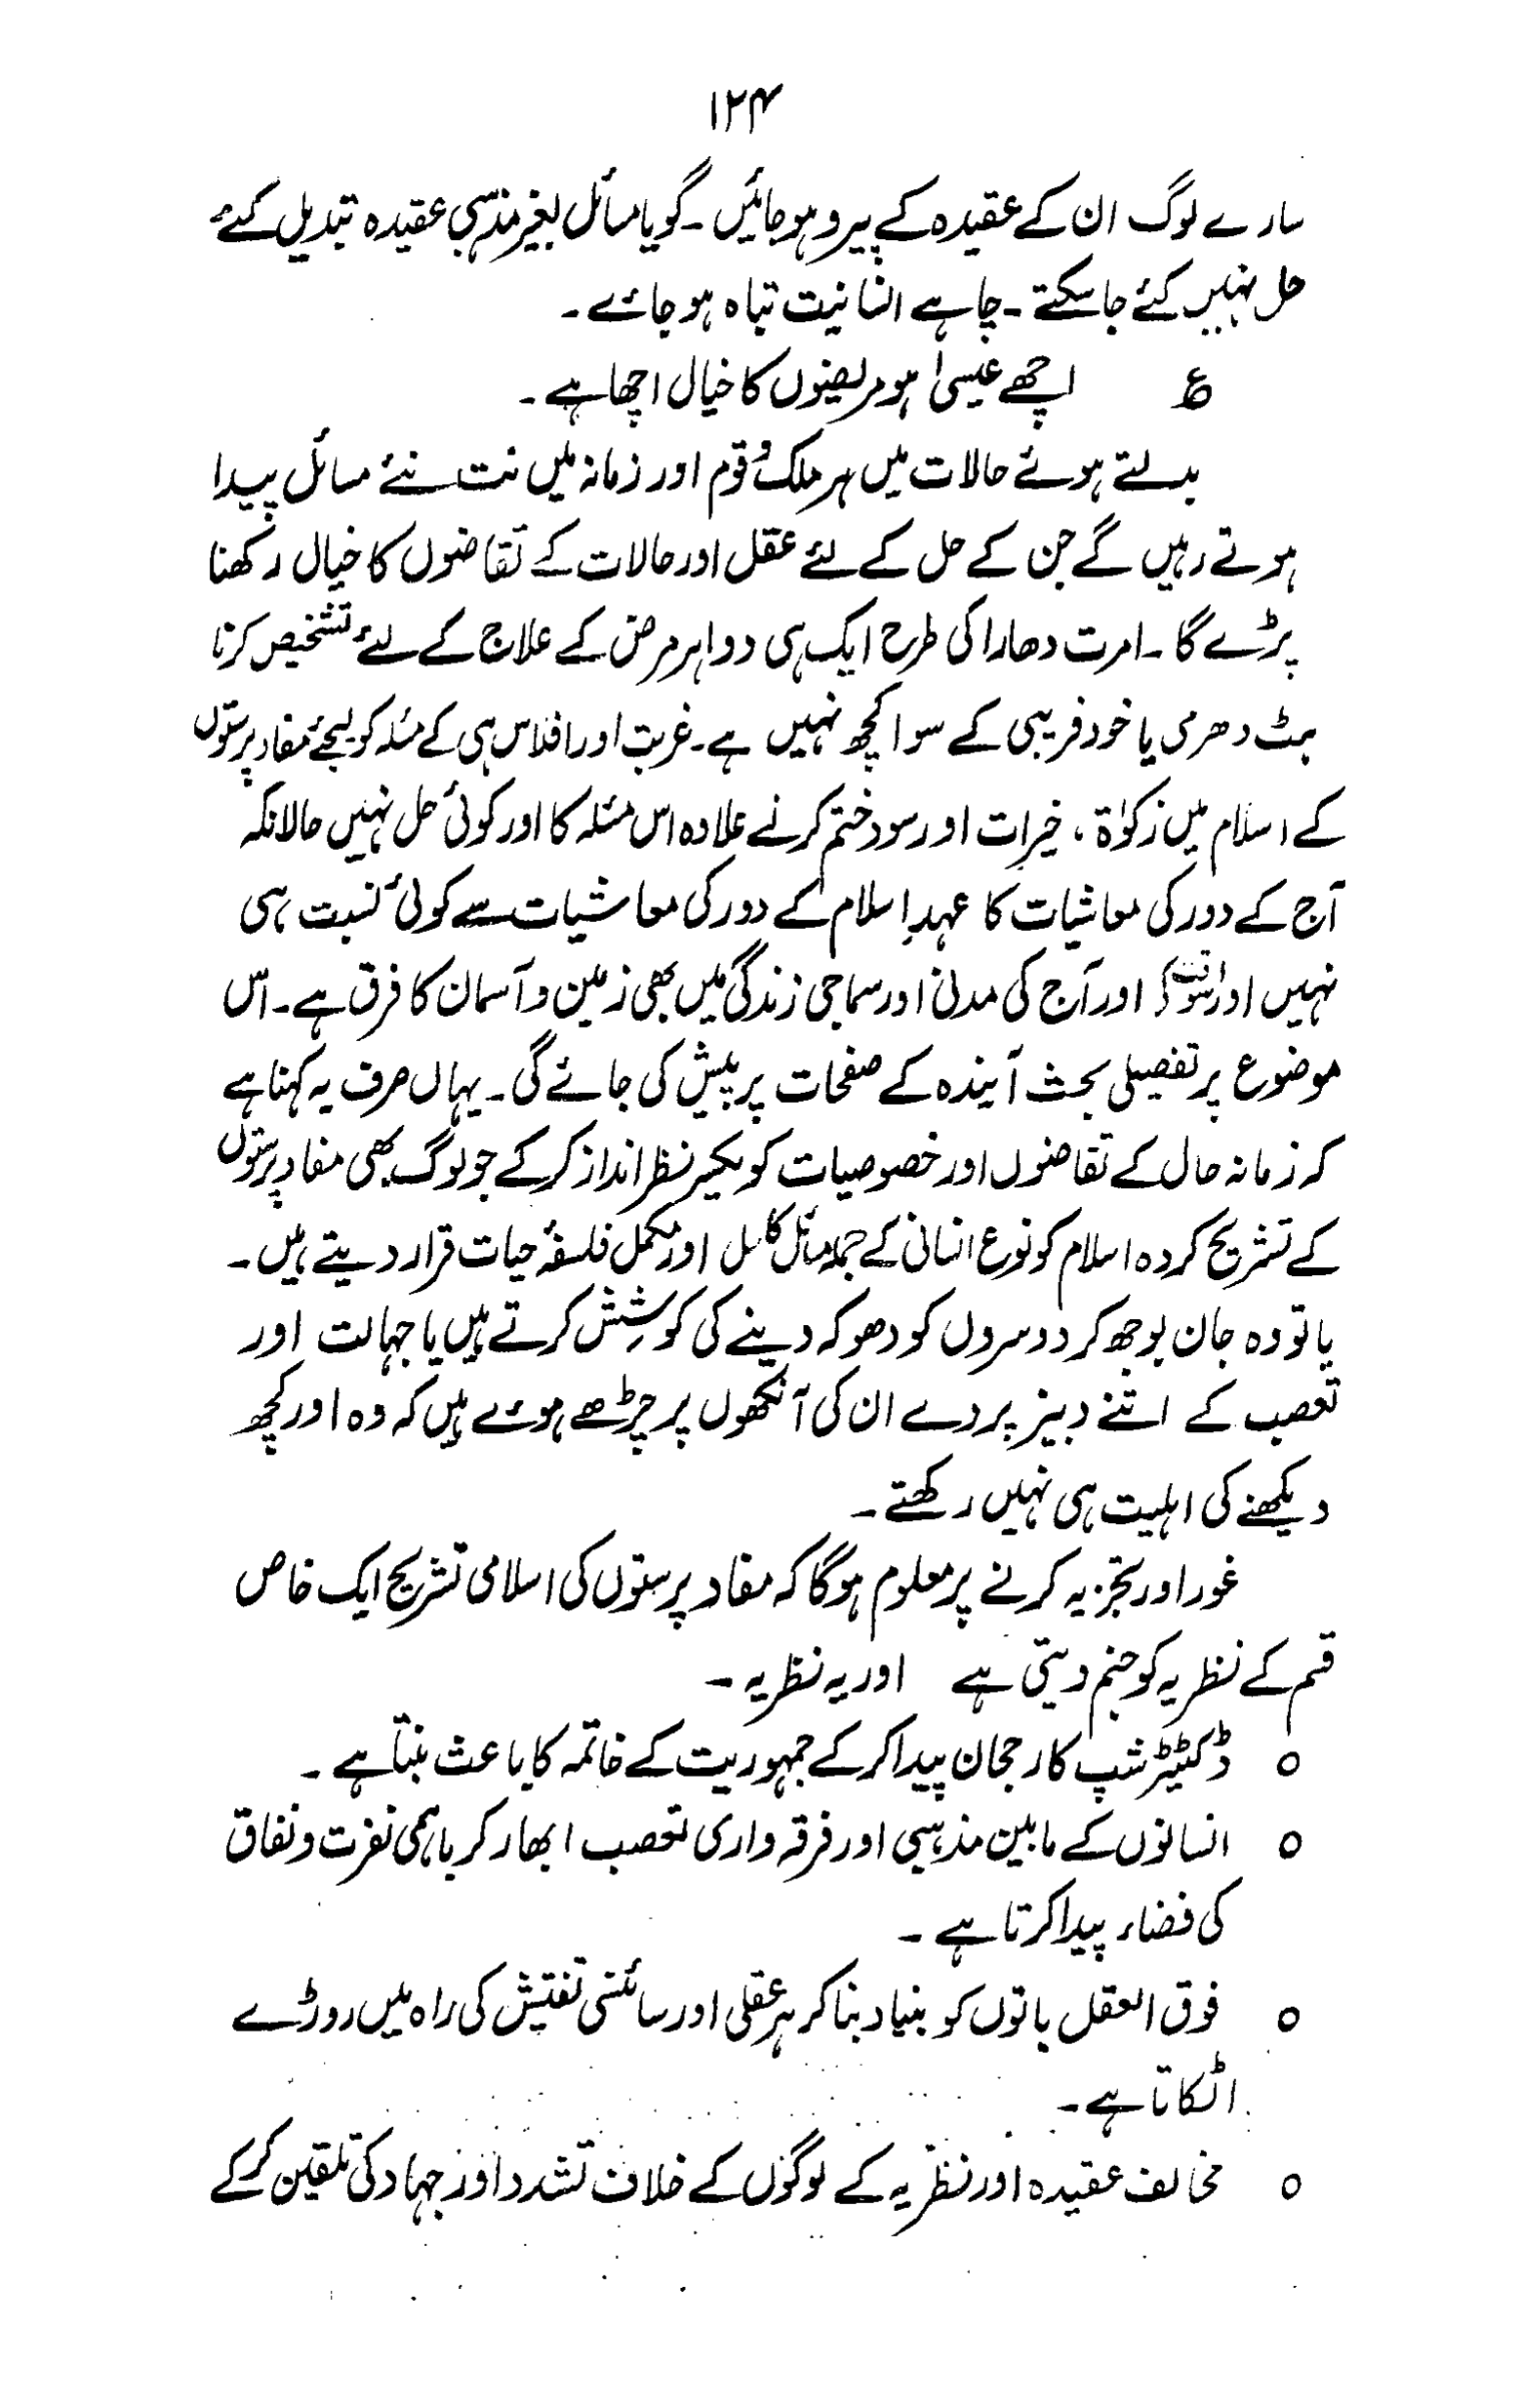 ۱۲۴
سارے لوگ ان کے عقیدہ کے پیرو ہو جائیں۔ گویا مسائل بغیر مذہبی عقیدہ تبدیل کئے
حل نہیں کئے جا سکتے۔ چاہے انسانیت تباہ ہو جائے۔
ع اچھے عیسیٰ ہو مریضوں کا خیال اچھا ہے۔
بدلتے ہوئے حالات میں ہر ملک و قوم اور زمانہ میں نت نئے مسائل پیدا
ہوتے رہیں گے جن کے حل کے لئے عقل اور حالات کے تقاضوں کا خیال رکھنا
پڑے گا۔ امرت دھارا کی طرح ایک ہی دوا ہر مرض کے علاج کے لئے تشخیص کرنا
ہٹ دھرمی یا خود فریبی کے سوا کچھ نہیں ہے۔ غربت اور افلاس ہی کے مسئلہ کو لیجئے مفاد پرستوں
کے اسلام میں زکوٰۃ، خیرات اور سود ختم کرنے علاوہ اس مسئلہ کا اور کوئی حل نہیں حالانکہ
آج کے دور کی معاشیات کا عہدِ اسلام کے دور کی معاشیات سے کوئی نسبت ہی
نہیں اور اس وقت کی اور آج کی مدنی اور سماجی زندگی میں بھی زمین و آسمان کا فرق ہے۔ اس
موضوع پر تفصیلی بحث آیندہ کے صفحات پر پیش کی جائے گی۔ یہاں صرف یہ کہنا ہے
کہ زمانہ حال کے تقاضوں اور خصوصیات کو یکسر نظر انداز کر کے جو لوگ بھی مفاد پرستوں
کے تشریح کردہ اسلام کو نوع انسانی کے جملہ مسائل کا حل اور مکمل فلسفۂ حیات قرار دیتے ہیں۔
یا تو وہ جان بوجھ کر دوسروں کو دھوکہ دینے کی کوشش کرتے ہیں یا جہالت اور
تعصب کے اتنے دبیز پردے ان کی آنکھوں پر چڑھے ہوئے ہیں کہ وہ اور کچھ
دیکھنے کی اہلیت ہی نہیں رکھتے۔
غور اور تجزیہ کرنے پر معلوم ہوگا کہ مفاد پرستوں کی اسلامی تشریح ایک خاص
قسم کے نظریہ کو جنم دیتی ہے اور یہ نظریہ ۔
○ ڈکٹیٹر شپ کا رجحان پیدا کر کے جمہوریت کے خاتمہ کا باعث بنتا ہے۔
○ انسانوں کے مابین مذہبی اور فرقہ واری تعصب ابھار کر باہمی نفرت و نفاق
کی فضاء پیدا کرتا ہے۔
○ فوق العقل باتوں کو بنیاد بنا کر ہر عقلی اور سائنسی تفتیش کی راہ میں روڑے
اٹکاتا ہے۔
○ مخالف عقیدہ اور نظریہ کے لوگوں کے خلاف تشدد اور جہاد کی تلقین کر کے